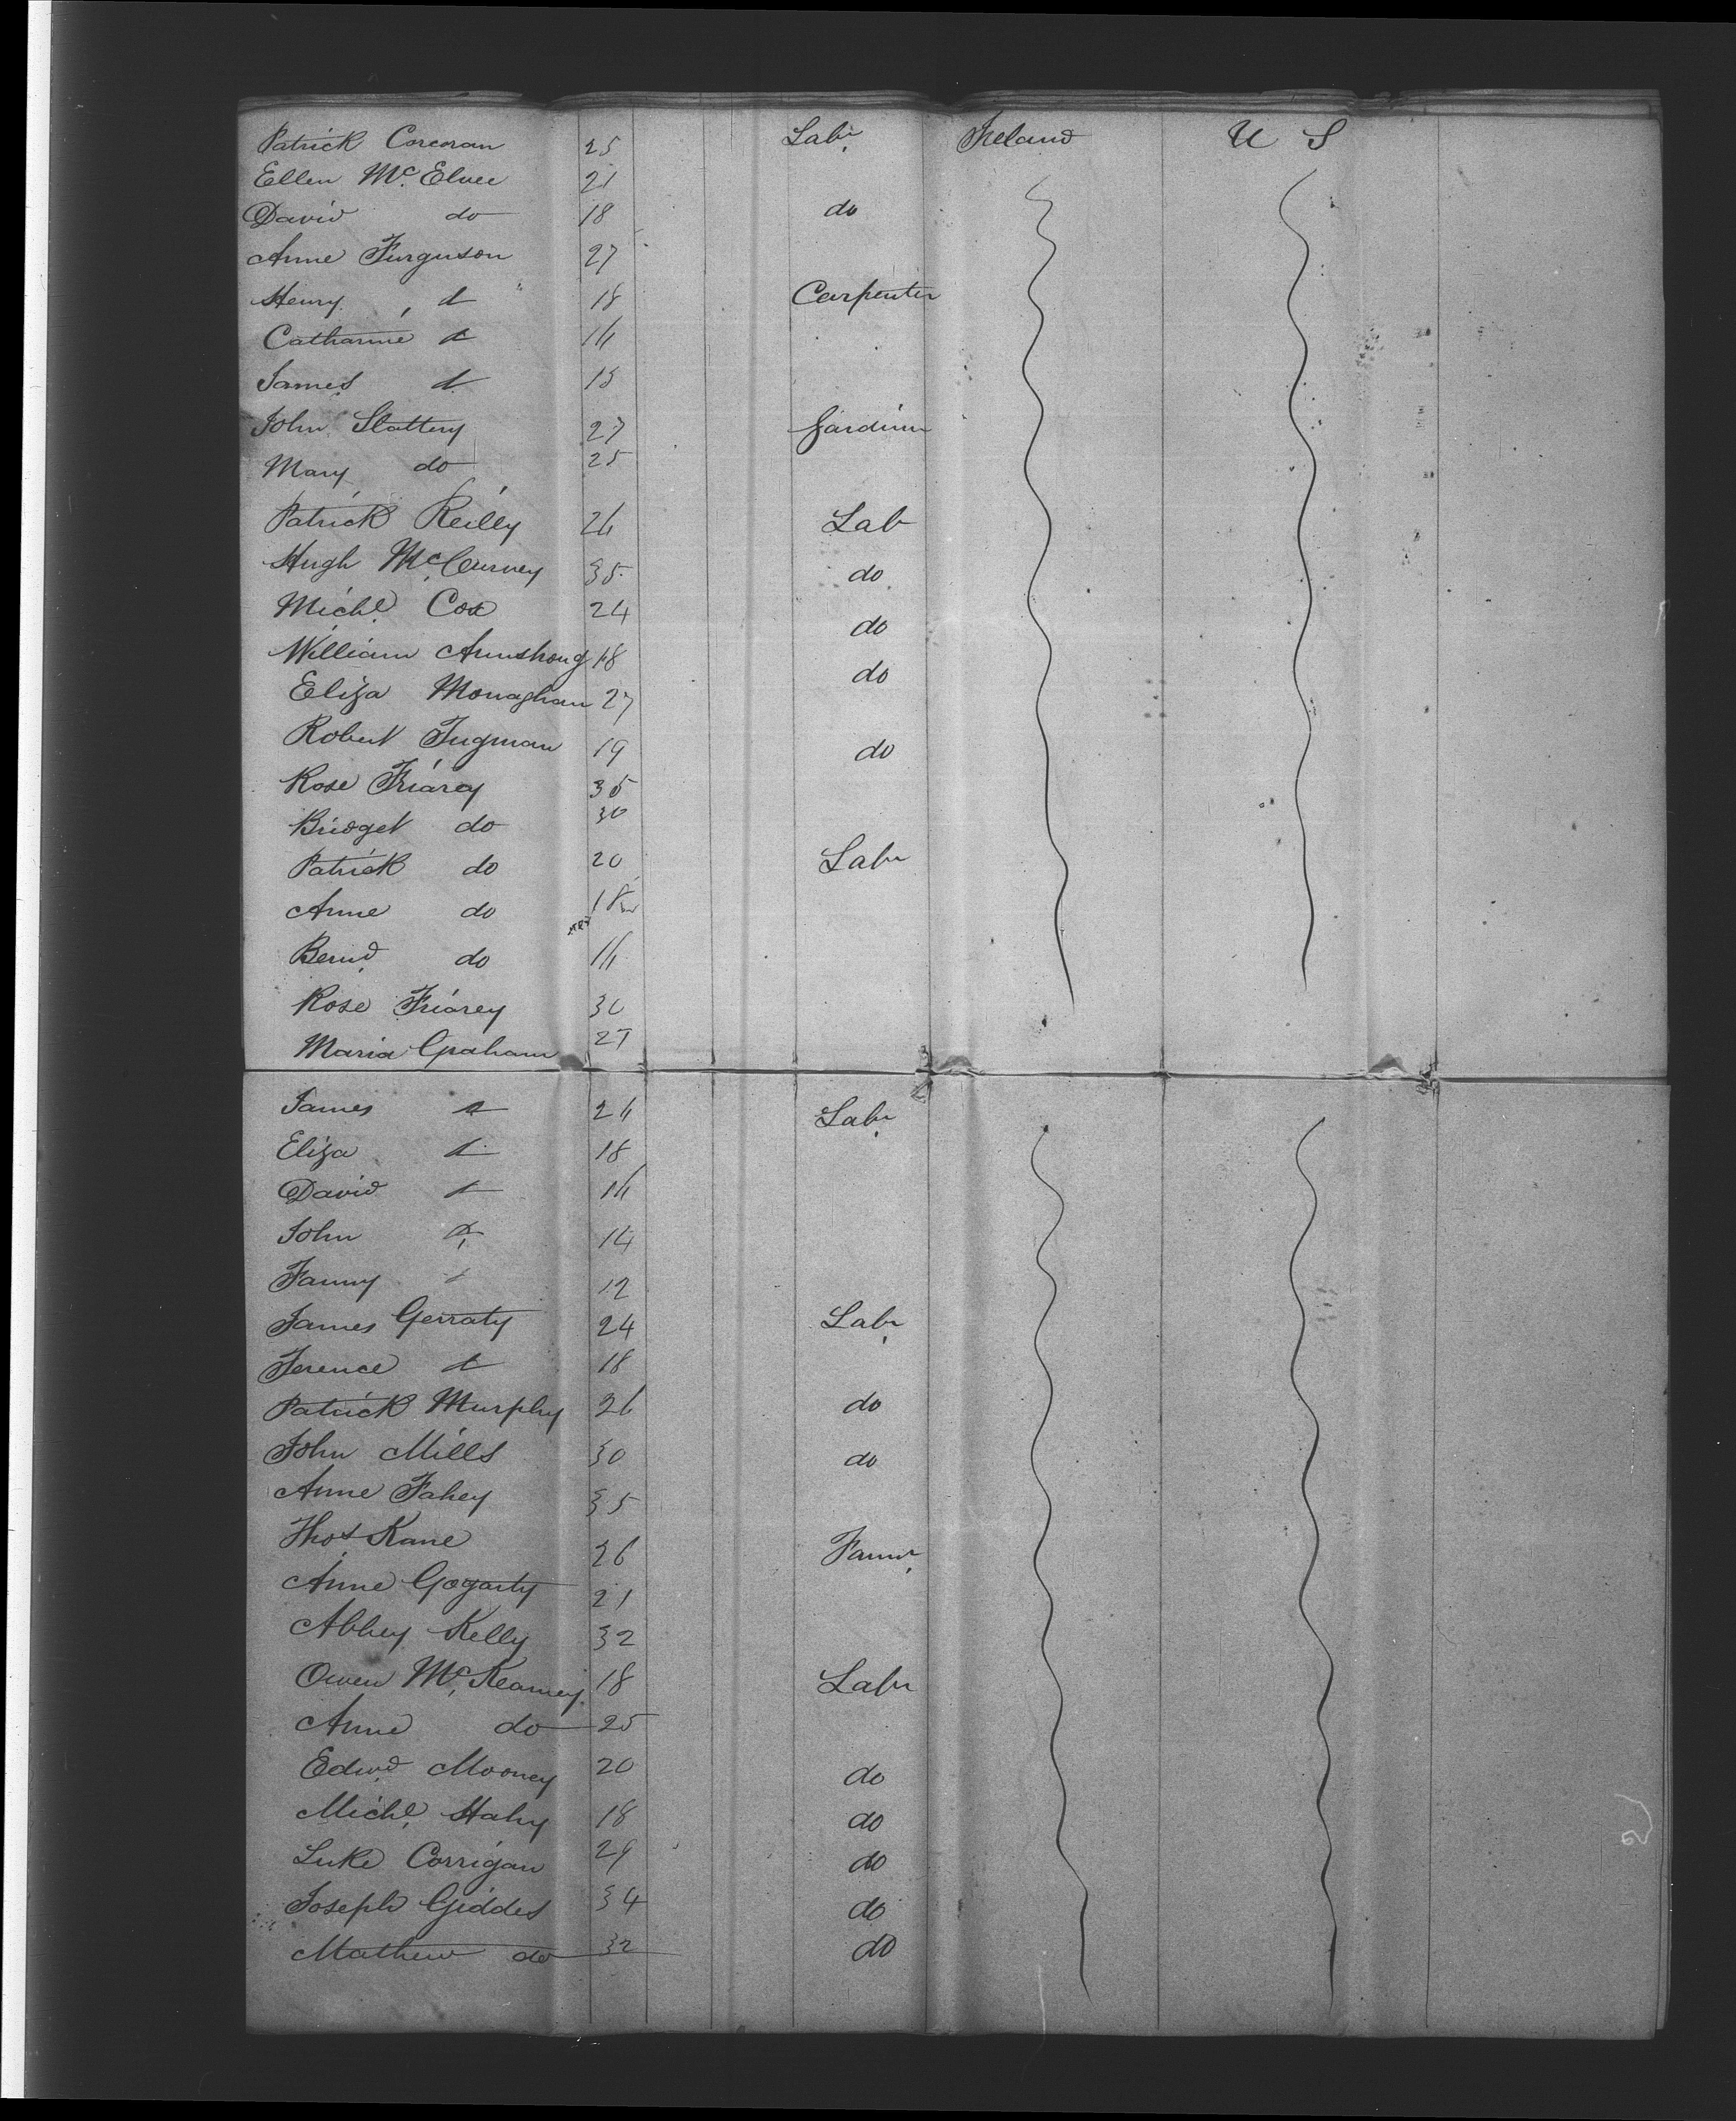 Patrick Corcoran 25 Labr Ireland U S
Ellen McElvee 21
David do 18 do
Anne Furguson 27
Henry d 18 Carpenter
Catharine d 16
James d 15
John Slattery 27 Gardiner
Mary do 25
Patrick Reilly 26 Lab
Hugh McCurney 35 do
Michl Cox 24 do
William Armstrong 18 do
Eliza Monaghan 27
Robert Tugman 19 do
Rose Friarey 35
Bridget do 30
Patrick do 20 Labr
Anne do 18
Bernd do 16
Rose Friarey 30
Maria Graham 27
James d 26 Labr
Eliza d 18
David d 16
John d 14
Fanny d 12
James Gerraty 24 Labr
Terence d 18
Patrick Murphy 26 do
John Mills 30 do
Anne Fahey 35
Thos Kane 26 Farmr
Anne Gogarty 21
Abbey Kelly 32
Owen McKearney 18 Labr
Anne do 25
Edwd Mooney 20 do
Michl Hahy 18 do
Luke Corrigan 29 do
Joseph Giddes 34 do
Mathew do 32 do